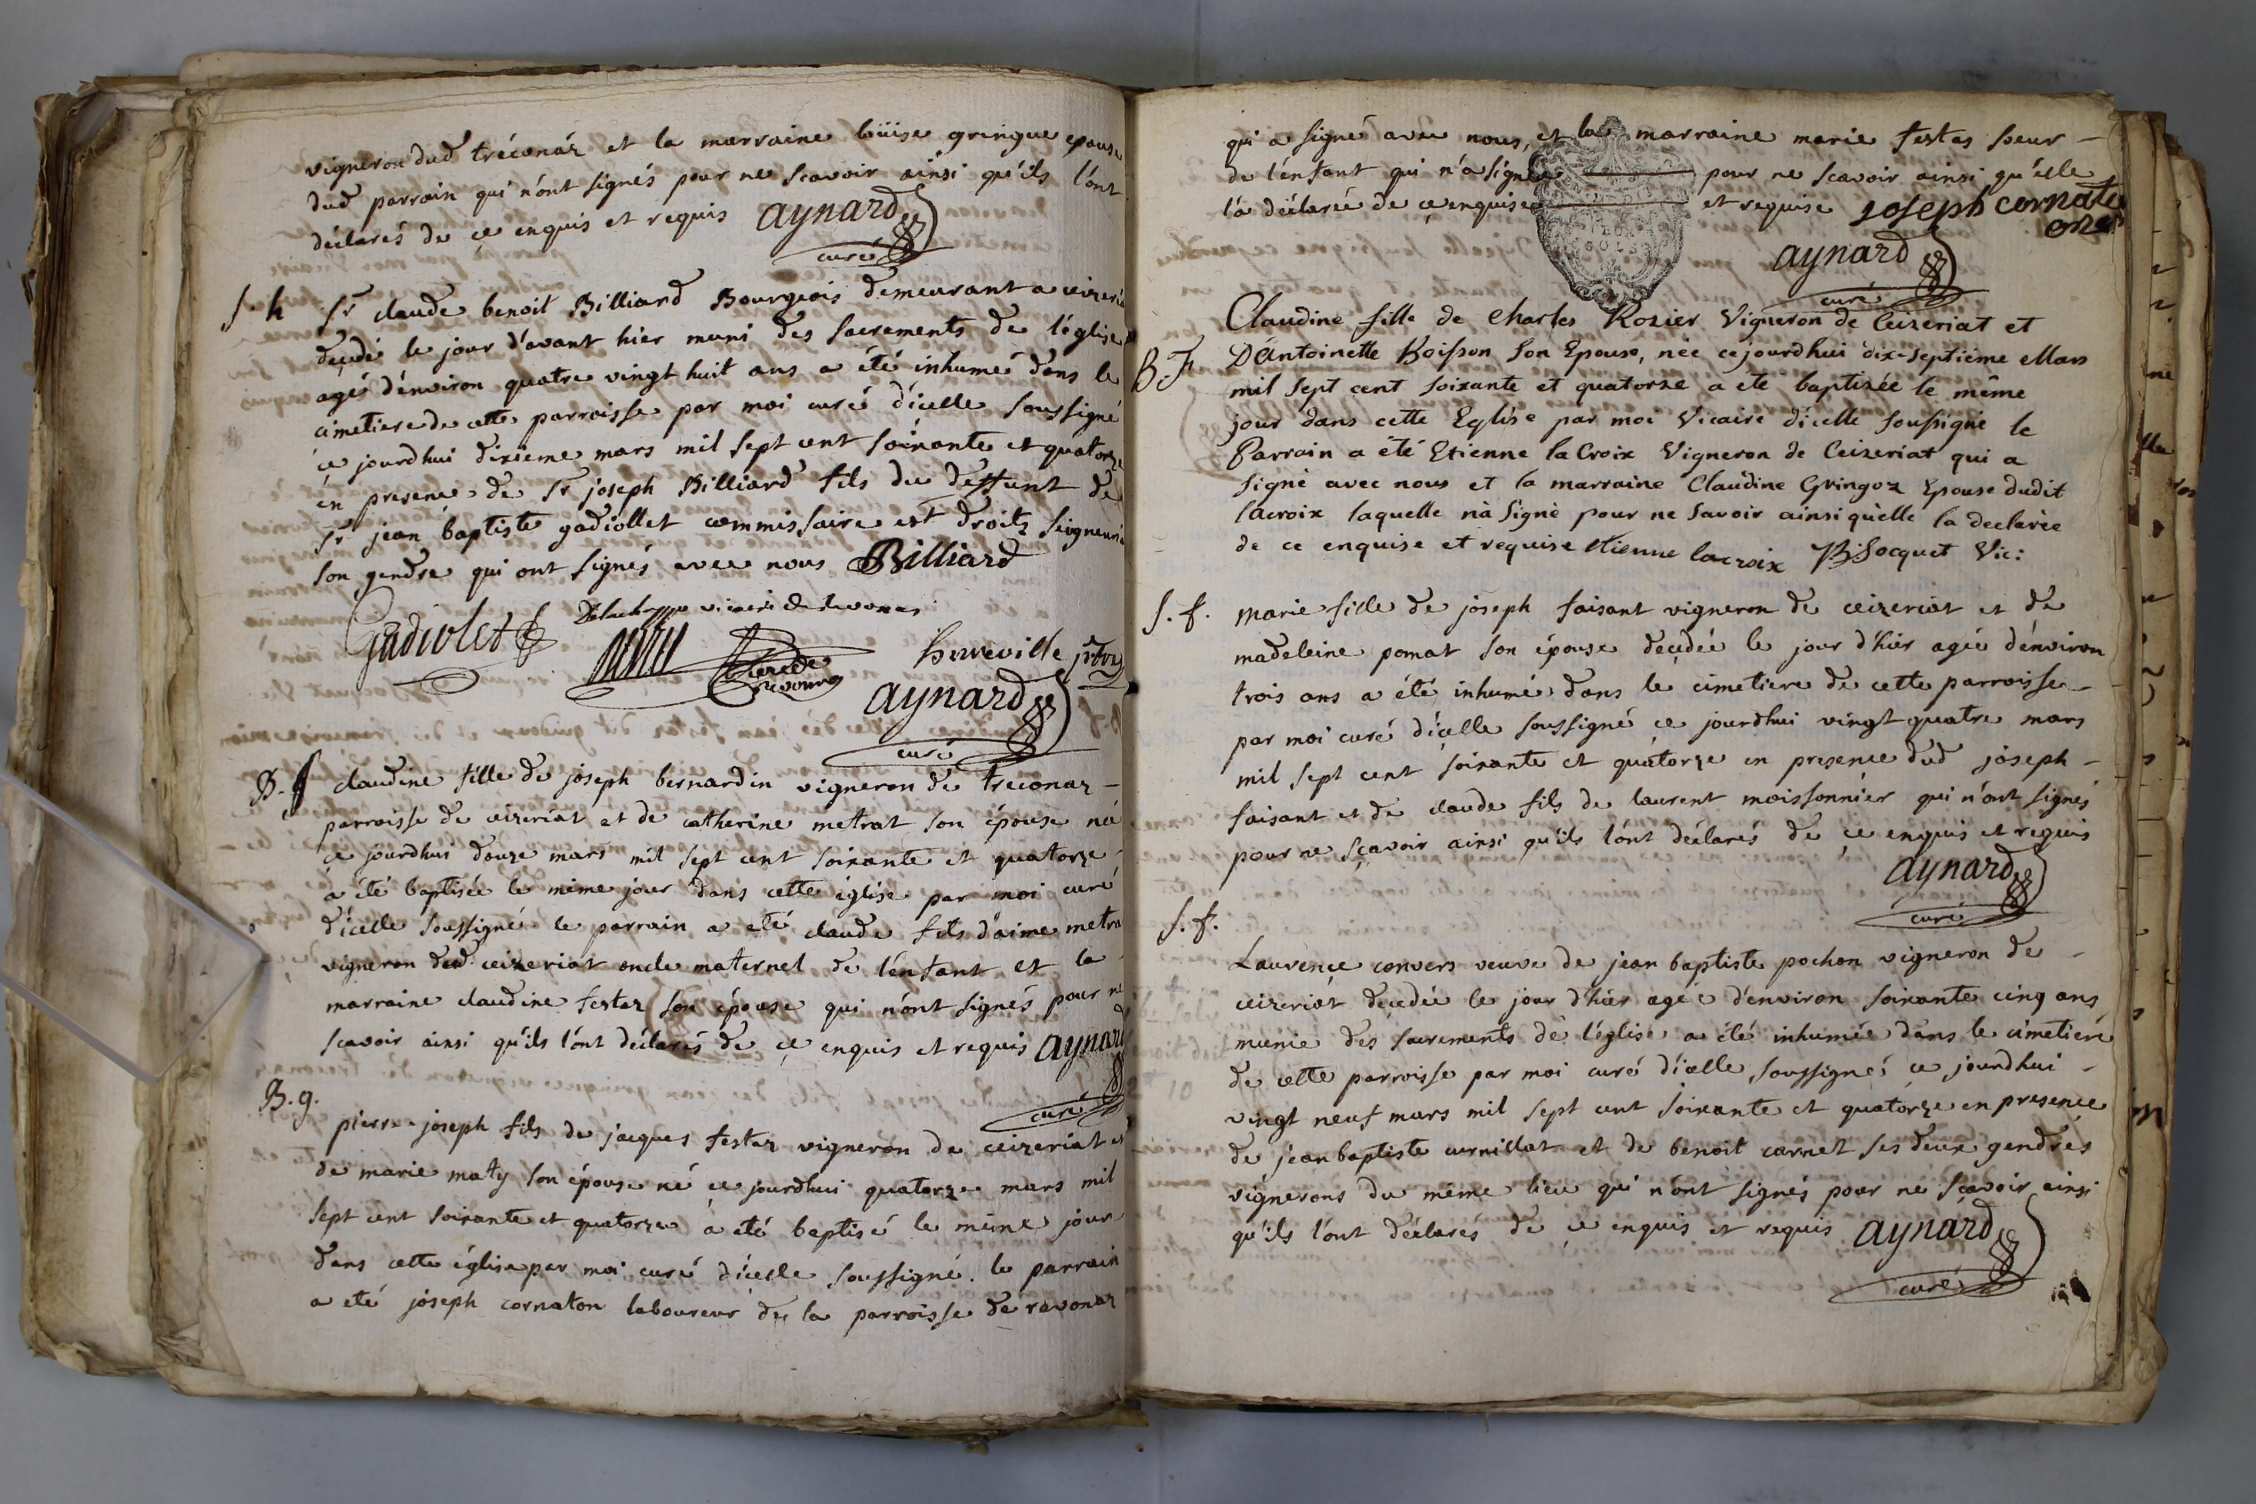 vigneron dud tréconaz et la marraine loüise gringue epouse
dud parrain qui n'ont signés pour ne scavoir ainsi qu'ils l'ont
déclarés de ce enquis et requis aynard
curé
S. h Sr claude benoit Billiard Bourgeois demeurant a ceizeria
decedé le jour d'avant hier muni des sacrements de l'église
agés d'environ quatre vingt huit ans a été inhumé dans le
cimetiere de cette parroisse par moi curé d'icelle soussigné
ce jourdhui dixieme mars mil sept cent soixante et quatorze
en presence de Sr joseph Billiard fils du deffunt de
Sr jean baptiste gadiollet commissaire est droits seigneuri
son gendre qui ont signés avec nous Billiard
vicaire de revonas
Gadiolet
curé de revonas
herreville ptre
aynard
curé
B. f claudine fille de joseph bernardin vigneron de treconaz -
parroisse de ceizeriat et de catherine metrat son épouse née
ce jourdhui douze mars mil sept cent soixante et quatorze
a été baptisée le même jour dans cette église par moi curé
d'icelle soussigné le parrain a eté claude fils d'aime metra
vigneron dud ceizeriat oncle maternel de l'enfant et la
marraine claudine festaz son épouse qui n'ont signés pour ne
scavoir ainsi qu'ils l'ont déclarés de ce enquis et requis aynard
curé
B. g.
pierre joseph fils de jacques festaz vigneron de ceizeriat et
de marie maty son épouse né ce jourdhui quatorze mars mil
sept cent soixante et quatorze a eté baptisé le même jour
dans cette église par moi curé d'icelle soussigné. le parrain
a eté joseph cornaton laboureur de la parroisse de revonaz
qui a signé avec nous, et la marraine marie festas soeur -
de l'enfant qui n'a signée pour ne scavoir ainsi qu'elle
l'a déclarée de ce enquise et requise joseph cornato
onet
aynard
curé
Claudine fille de Charles Rozier Vigneron de Ceizeriat et
B. F D'Antoinette Boisson son Epouse, née cejourdhui dix-septième Mars
mil sept cent soixante et quatorze a eté baptizée le même
jour dans cette Eglise par moi Vicaire d'icelle soussigné le
Parrain a été Etienne la Croix Vigneron de Ceizeriat qui a
signé avec nous et la marraine Claudine Gringoz Epouse dudit
lacroix laquelle n'a signé pour ne savoir ainsi qu'elle la declarée
de ce enquise et requise Etienne lacroix B: Socquet Vic:
S. f. marie fille de joseph faisant vigneron de ceizeriat et de
madeleine pomat son épouse decedée le jour d'hier agée d'environ
trois ans a été inhumé dans le cimetiere de cette parroisse -
par moi curé d'icelle soussigné ce jourdhui vingt quatre mars
mil sept cent soixante et quatorze en presence dud joseph -
faisant et de claude fils de laurent moissonnier qui n'ont signés
pour ne sçavoir ainsi qu'ils l'ont déclarés de ce enquis et requis
aynard
curé
S. f.
Laurence convers veuve de jean baptiste pochon vigneron de -
ceizeriat decedée le jour d'hier agée d'environ soixante cinq ans
munie des sacrements de l'église a été inhumée dans le cimetiere
de cette parroisse par moi curé d'icelle soussigné ce jourdhui -
vingt neuf mars mil sept cent soixante et quatorze en presence
de jean baptiste curnillat et de benoit carnet ses deux gendres
vignerons du même lieu qui n'ont signés pour ne sçavoir ainsi
qu'ils l'ont déclarés de ce enquis et requis aynard
curé